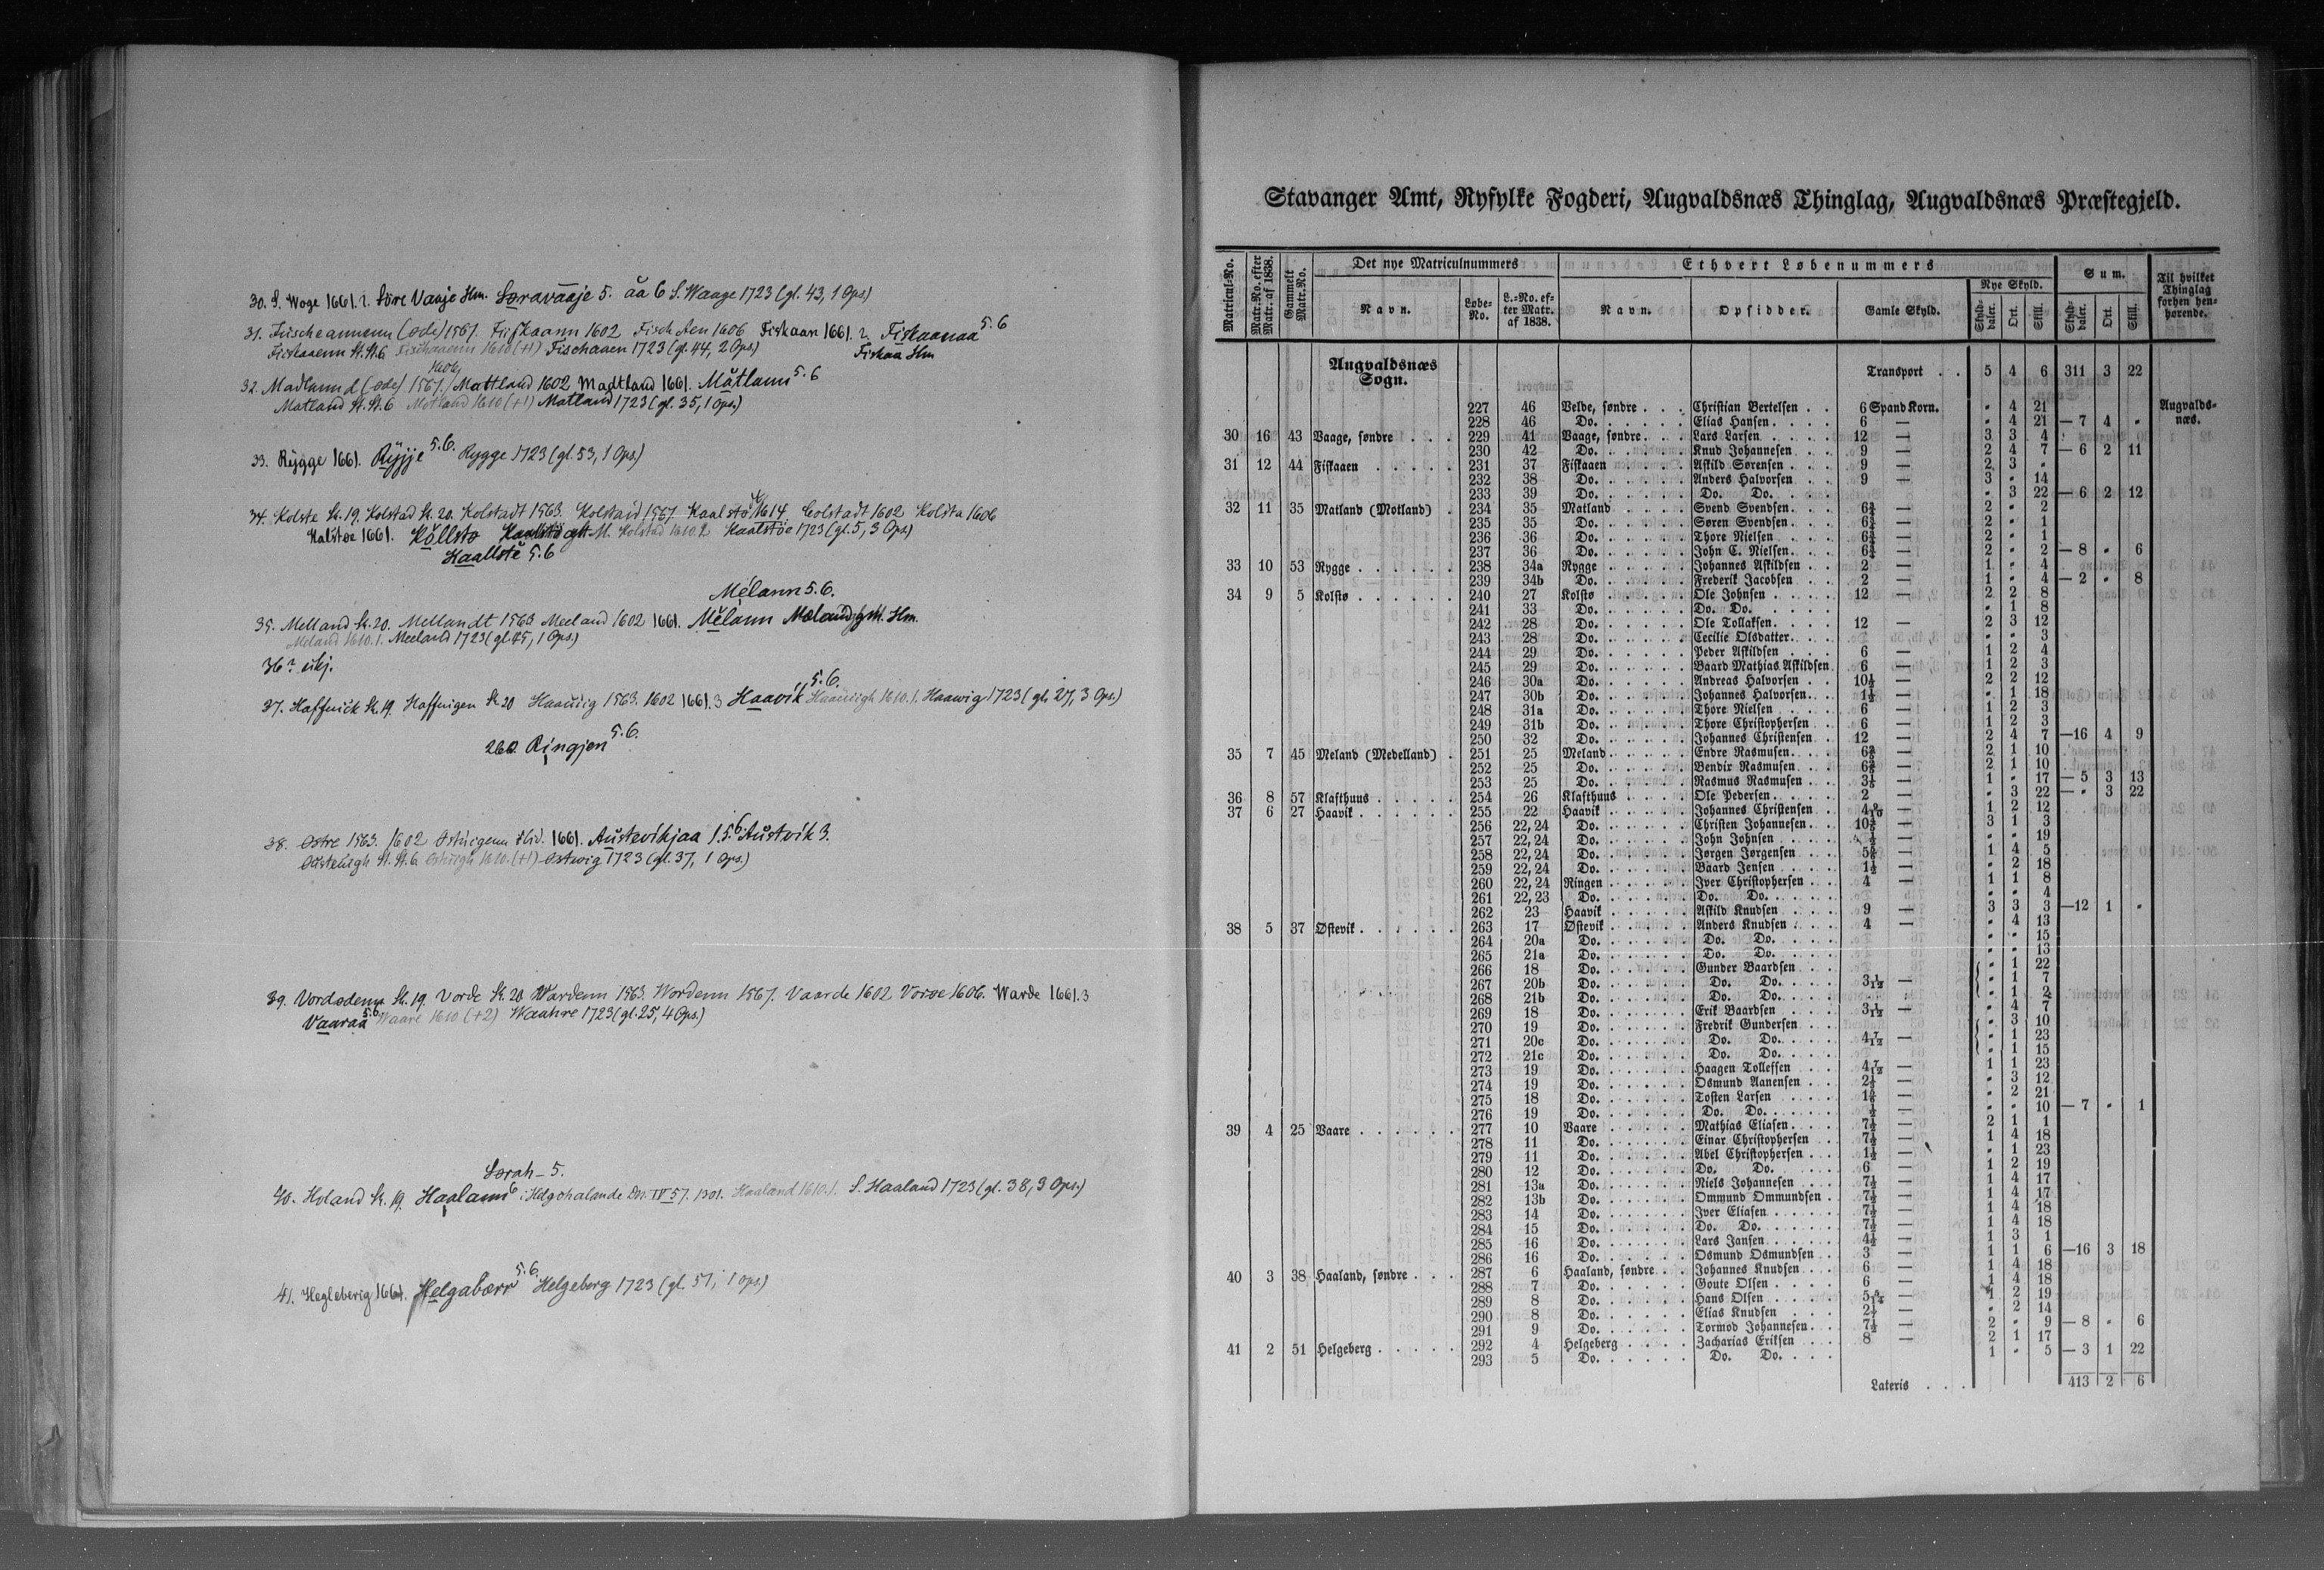 30. S. Woge 1661.2. Söre Vaaje Hm. Søravaaje 5. åå 6 S. Waage 1723 (gl. 43, 1 Ops.)
31. (øde) 1567. Fiskaann 1602 Fisch Aen 1606 Fiskaan 1661. 2 Fiskaanaa 5.6
Fiskaaenn St. St. 6 Fischaaenn 1610 (+1) Fischaaen 1723 (gl. 44, 2 Ops.) Fiskaa Hm
1606,
32. Madlannd (øde) 1567. / Mattland 1602 Madtland 1661. Måtlann 5.6
Matland St. St. 6 Motland 1610 (+1) Matland 1723 (gl. 35, 1 Ops.)
33. Rÿgge 1661. Rÿjje 5.6. Rygge 1723 (gl. 53, 1 Ops.)
34. Kolste St. 19. Kolstad St. 20. Kolstadt 1563. Kolstaid 1567 Kaalstø 1614 Colstadt 1602 Kolsta 1606
Kalstøe 1661. Kållstø M. Kolstad 1610.2 Kaalstöe 1723 (gl. 5, 3 Ops)
Kaallstè 5.6
Mélann 5.6.
35. Melland St. 20. Mellandt 1563 Meeland 1602 1661. Mèlann Mæland Hm.
Meland 1610.1. Meeland 1723 (gl. 45, 1 Ops.)
36? ukj.
37. Haffuick St. 19. Haffuigen St. 20 Haauig 1563. 1602 1661.3 Haavík 5.6. Haauigh 1610.1. Haawig 1723 (gl. 27, 3 Ops.)
260. Ringjen 5.6.
38. Østre 1563. 1602 Østuigenn ibid. 1661. Austevikjaa 1.5.6. Austvik 3.
Østeuigh St. St. 6 Østuigh 1610. (+1) Ostwig 1723 (gl. 37, 1 Ops.)
39. Vordsdenn St. 19. Vorde St. 20 Wardenn 1563. Wordenn 1567. Vaarde 1602 Voroe 1606. Warde 1661.3
Vaaraa 5.6 Waare 1610 (+2) Waahre 1723 (gl. 25, 4 Ops.)
Sørah- 5.
40. Holand St. 19. Haalann 6 : Helgohalande Dn. IV 57. 1301. Haaland 1610.1. S. Haaland 1723 (gl. 38, 3 Ops.)
41. Hegleberig 1661. Helgabærr 5.6. Helgeberg 1723 (gl. 51, 1 Ops.)
Stavanger Amt, Ryfylke Fogderi, Augvaldsnæs Thinglag, Augvaldsnæs Præstegjeld.
Matricul-No. Matr.-No. efter Matr. af 1838. Gammelt Matr.-No. Det nye Matriculnummers Ethvert Løbenummers Sum. Til hvilket Thinglag forhen henhørende.
Navn. Løbe-No. L.-No. efter Matr. af 1838. Navn. Opsidder. Gamle Skyld. Nye Skyld. Skylddaler. Ort. Skill. Skylddaler. Ort. Skill.
Augvaldsnæs Sogn. Transport . . 5 4 6 311 3 22
227 46 Velde, søndre . . . Christian Bertelsen . . 6 Spand Korn. " 4 21 Augvaldsnæs.
228 46 Do. Elias Hansen. 6 — " 4 21 — 7 4 "
30 16 43 Vaage, søndre . . . 229 41 Vaage, søndre. . . Lars Larsen 12 — 3 3 4
230 42 Do. Knud Johannesen . . 9 — 2 4 7 — 6 2 11
31 12 44 Fiskaaen 231 37 Fiskaaen Askild Sørensen 9 — 2 3 "
232 38 Do. Anders Halvorsen . . 9 — 3 " 14
233 39 Do. Do. Do. " 3 22 — 6 2 12
32 11 35 Matland (Motland) . 234 35 Matland Svend Svendsen. . . 6¾ — 2 " 2
235 35 Do. Søren Svendsen. . . 6¾ — 2 " 1
236 36 Do. Thore Nielsen 6¾ — 2 " 1
237 36 Do. John C. Nielsen. . . 6¾ — 2 " 2 — 8 " 6
33 10 53 Rygge 238 34a Rygge Johannes Askildsen . . 2 — 1 " 4
239 34b Do. Frederik Jacobsen . . 2 — 1 " 4 — 2 " 8
34 9 5 Kolstø 240 27 Kolstø Ole Johnsen 12 — 2 2 8
241 33 Do. Do. Do. " 1 8
242 28 Do. Ole Tollaksen. 12 — 2 3 12
243 28 Do. Cecilie Olsdatter. . . " " 3
244 29 Do. Peder Askildsen 6 — 1 2 4
245 29 Do. Baard Mathias Askildsen. 6 — 1 2 3
246 30a Do. Andreas Halvorsen . . 10½ — 2 2 12
247 30b Do. Johannes Halvorsen. . 1½ — " 1 18
248 31a Do. Thore Nielsen 6 — 1 2 3
249 31b Do. Thore Christophersen . . 6 — 1 2 3
250 32 Do. Johannes Christensen . 12 — 2 4 7 —16 4 9
35 7 45 Meland (Medelland) . 251 25 Meland Endre Rasmusen. . . 6⅗ — 2 1 10
252 25 Do. Bendix Rasmusen . . 6⅗ — 2 1 10
253 25 Do. Rasmus Rasmusen . . 3⅕ — 1 " 17 — 5 3 13
36 8 57 Klafthuus 254 26 Klafthuus Ole Pedersen. 2 — " 3 22 — " 3 22
37 6 27 Haavik 255 22 Haavik Johannes Christensen . 4 9/10 — 1 2 12
256 22, 24 Do. Christen Johannesen. . 10⅘ — 3 1 3
257 22, 24 Do. John Johnsen ½ — " " 19
258 22, 24 Do. Jørgen Jørgensen 5⅘ — 1 4 5
259 22, 24 Do. Baard Jensen 1½ — " 2 18
260 22, 24 Ringen Iver Christophersen . . 4 — 1 1 8
261 22, 23 Do. Do. Do. " " 4
262 23 Haavik Askild Knudsen 9 — 3 3 3 —12 1 "
38 5 37 Østevik 263 17 Østevik Anders Knudsen 4 — " 4 13
264 20a Do. Do. Do. " " 15
265 21a Do. Do. Do. " " 13
266 18 Do. Gunder Baardsen " 1 22
267 20b Do. Do. Do. 3 1/12 — " 1 7
268 21b Do. Do. Do. " 1 2
269 18 Do. Erik Baardsen 3 1/12 — " 4 7
270 19 Do. Fredrik Gundersen " 3 10
271 20c Do. Do. Do. 4 7/12 — " 1 23
272 21c Do. Do. Do. " 1 15
273 19 Do. Haagen Tollefsen 4 7/12 — 1 1 23
274 19 Do. Osmund Aanensen 2⅓ — " 3 12
275 18 Do. Tosten Larsen 1⅚ — " 2 21
276 19 Do. Do. Do. ½ — " " 10 — 7 " 1
39 4 25 Vaare 277 10 Vaare Mathias Eliasen. 7½ — 2 1 1
278 11 Do. Einar Christophersen 7½ — 1 4 18
279 11 Do. Abel Christophersen 1½ — " 1 23
280 12 Do. Do. Do. 6 — 1 2 19
281 13a Do. Niels Johannesen 7½ — 1 4 17
282 13b Do. Ommund Ommundsen . 7½ — 1 4 17
283 14 Do. Iver Eliasen 7½ — 1 4 18
284 15 Do. Do. Do. 7½ — 1 4 18
285 16 Do. Lars Jansen 4½ — 1 3 1
286 16 Do. Osmund Osmundsen . . 3 — 1 1 6 —16 3 18
40 3 38 Haaland, søndre . . . 287 6 Haaland, søndre. . Johannes Knudsen . . 6 — 1 4 18
288 7 Do. Goute Olsen 6 — 1 4 18
289 8 Do. Hans Olsen 5 5/14 — 1 2 19
290 8 Do. Elias Knudsen 2 1/7 — " 2 14
291 9 Do. Tormod Johannesen. . 7½ — 2 " 9 — 8 " 6
41 2 51 Helgeberg 292 4 Helgeberg Zacharias Eriksen . . 8 — 2 1 17
293 5 Do. Do. Do. 1 " 5 — 3 1 22
Lateris . . . 413 2 6